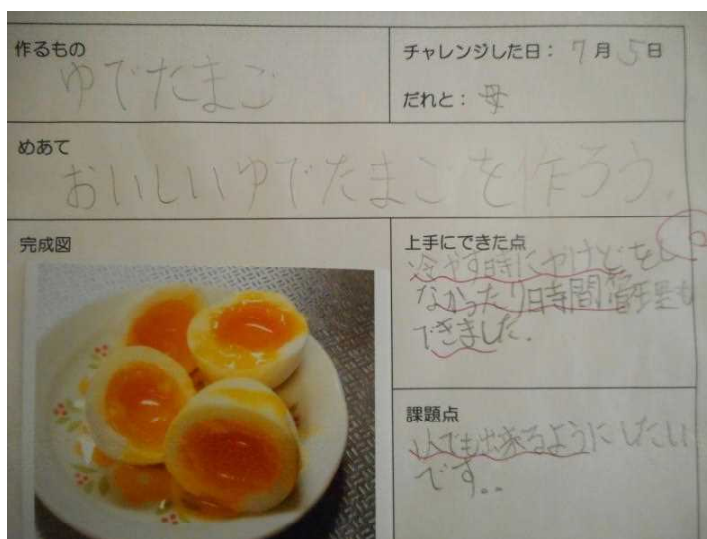 作るもの
ゆでたまご
チャレンジした日： 7月5日
だれと： 母
めあて
おいしいゆでたまごを作ろう。
完成図
上手にできた点
冷やす時にやけどをし
なかったり時間管理も
できました.
課題点
1人でも出来るようにしたい
です..